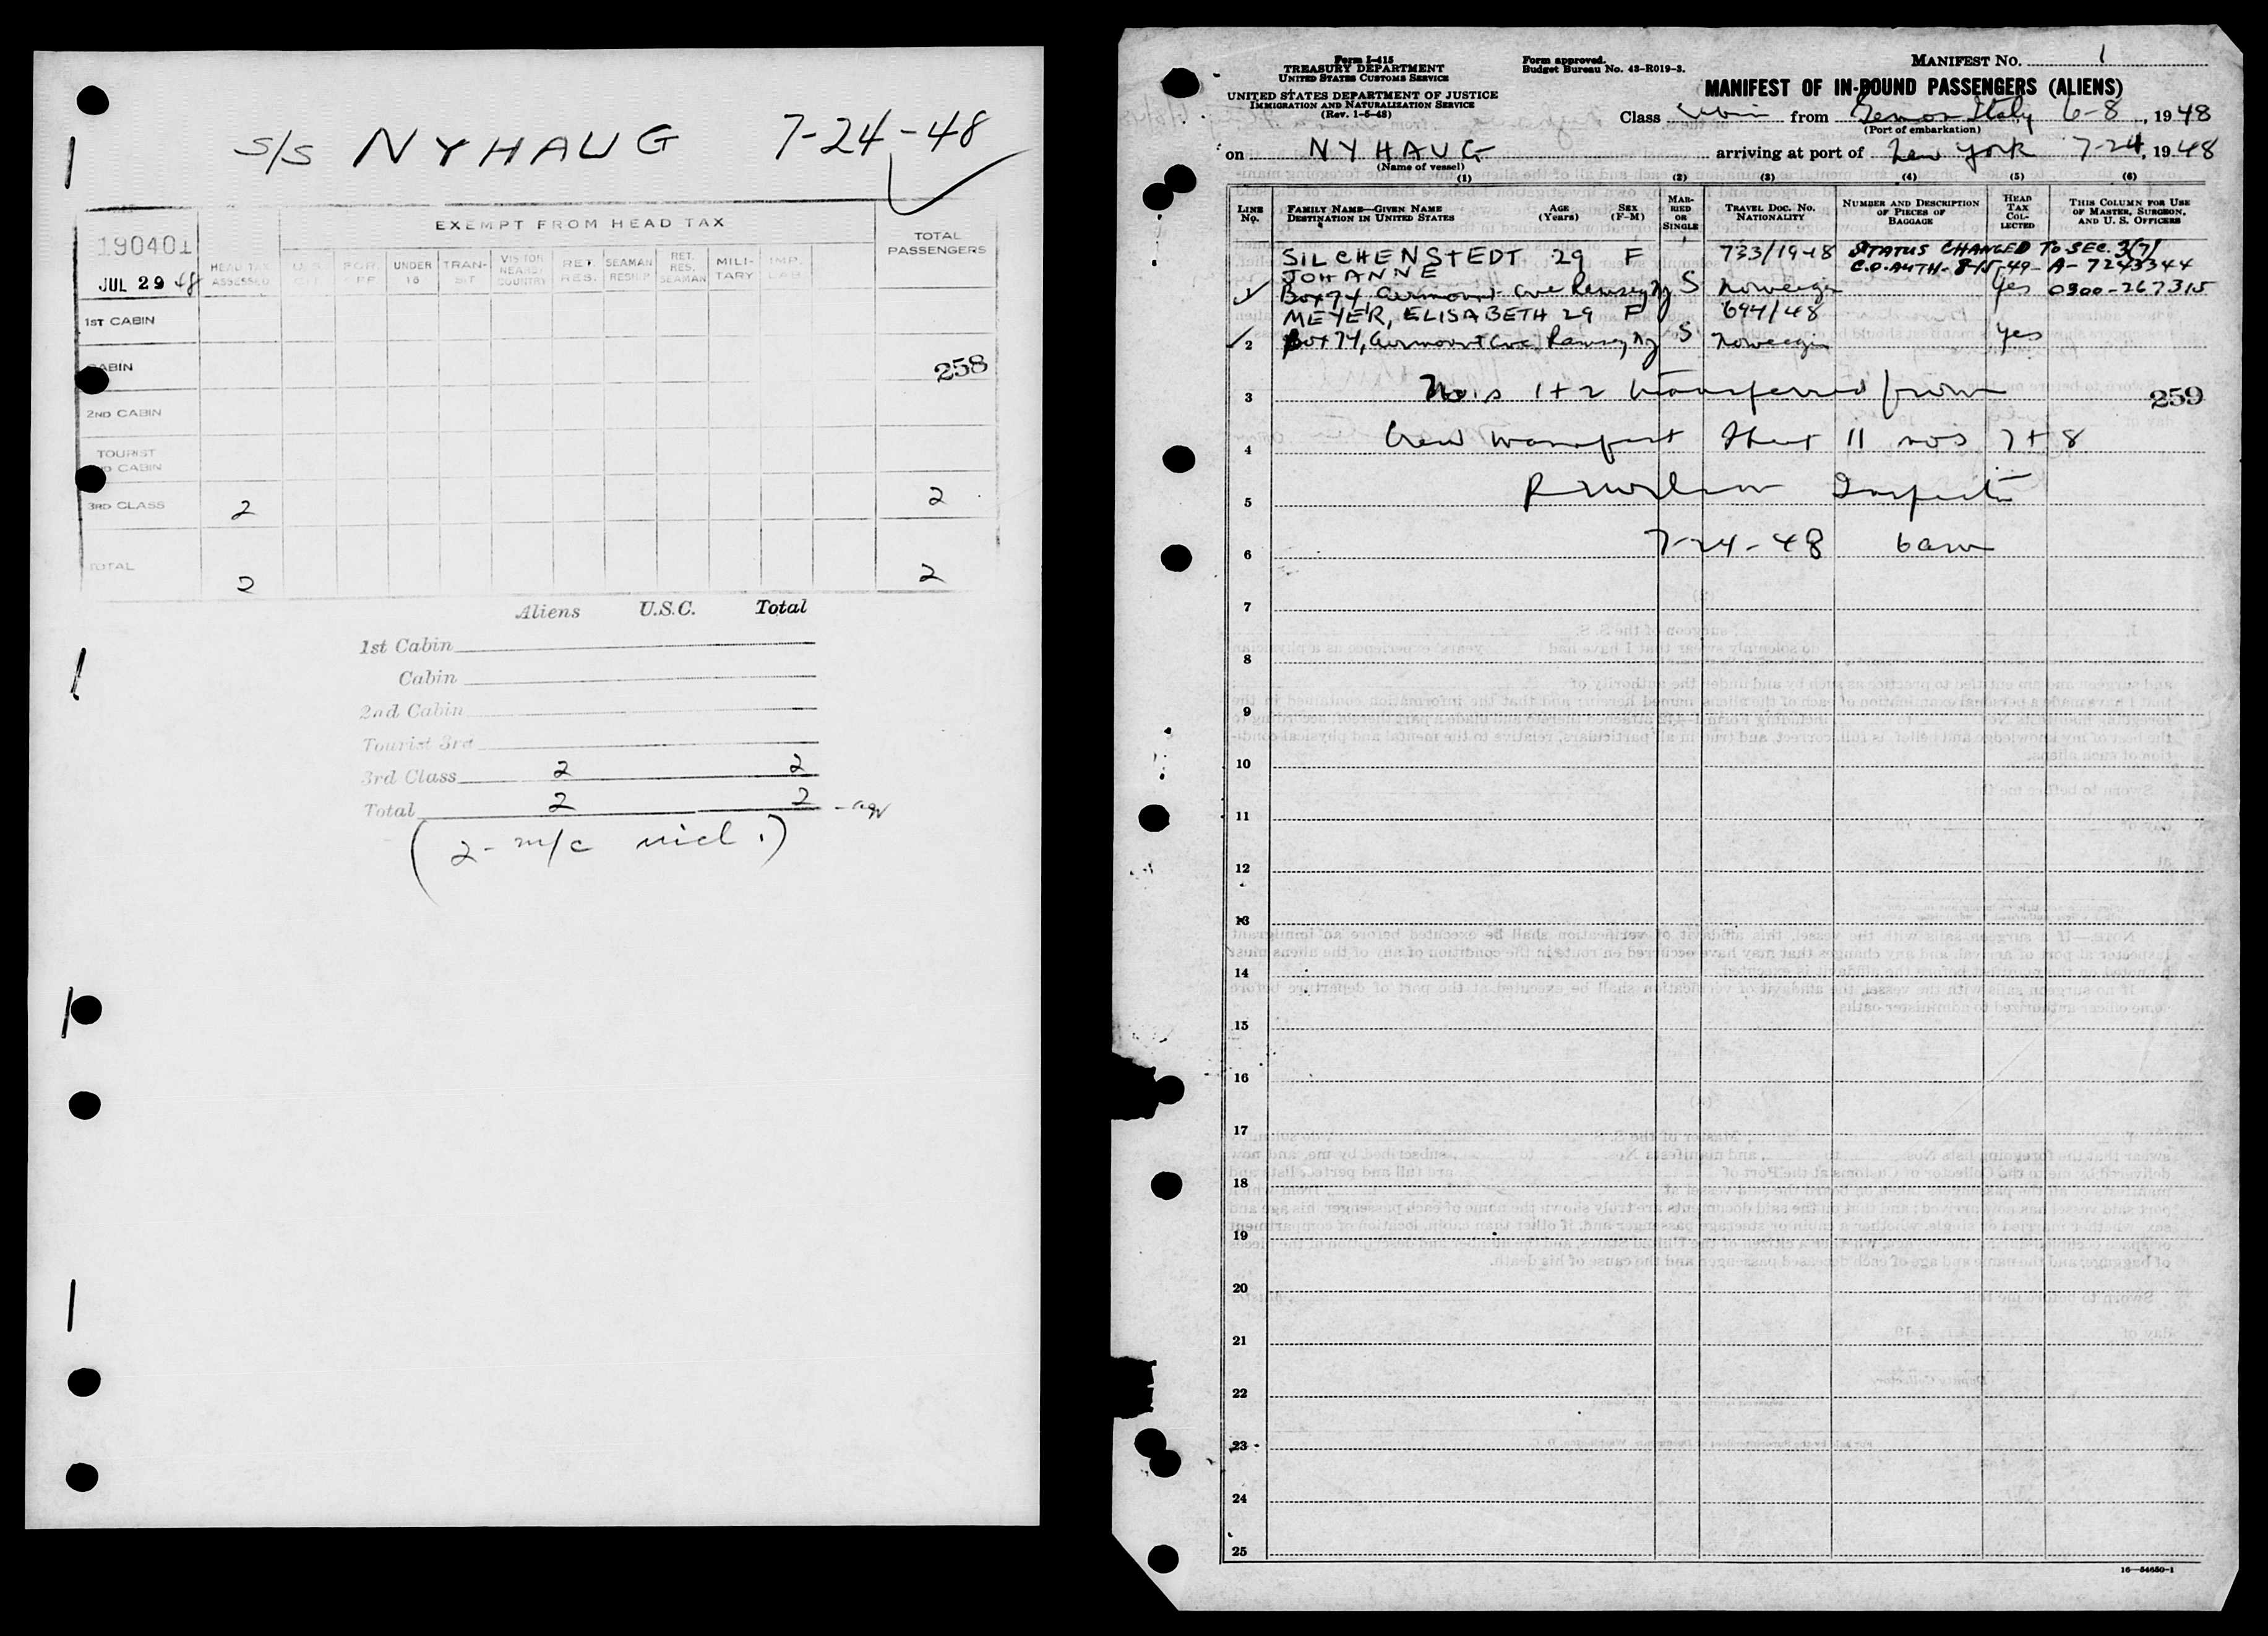 S/S NYHAUG 7-24-48
190401
JUL 29 48
EXEMPT FROM HEAD TAX
TOTAL PASSENGERS
HEAD TAX ASSESSED
UNDER 16
TRAN-SIT
VISITOR NEARBY COUNTRY
RET. RES.
SEAMAN RESHIP
RET. RES. SEAMAN
MILI-TARY
1ST CABIN
CABIN
258
2ND CABIN
TOURIST
CABIN
3RD CLASS 2 2
TOTAL 2 2
Aliens U.S.C. Total
1st Cabin
Cabin
2nd Cabin
Tourist 3rd
3rd Class 2 2
Total 2 2
(2- m/c incl.)
Form I-415
TREASURY DEPARTMENT
UNITED STATES CUSTOMS SERVICE
UNITED STATES DEPARTMENT OF JUSTICE
IMMIGRATION AND NATURALIZATION SERVICE
(Rev. 1-5-48)
Form approved.
Budget Bureau No. 43-R019-3.
MANIFEST NO. 1
MANIFEST OF IN-BOUND PASSENGERS (ALIENS)
Class Cabin from Genoa Italy 6-8, 1948
(Port of embarkation)
on NYHAUG arriving at port of New York 7-24, 1948
(Name of vessel)
(1) (2) (3) (4) (5) (6)
LINE NO.
FAMILY NAME—GIVEN NAME
DESTINATION IN UNITED STATES
AGE (Years)
SEX (F-M)
MARRIED OR SINGLE
TRAVEL DOC. NO.
NATIONALITY
NUMBER AND DESCRIPTION OF PIECES OF BAGGAGE
HEAD TAX COLLECTED
THIS COLUMN FOR USE OF MASTER, SURGEON, AND U. S. OFFICERS
SILCHENSTEDT 29 F 733/1948 STATUS CHANGED TO SEC. 3(7)
JOHANNE C.O. AUTH- 8-15-49- A-7243344
1 Box 74, Airmount Ave Ramsey NJ S Norwegian Yes 0300-267315
MEYER, ELISABETH 29 F 694/48
2 Box 74, Airmount Ave Ramsey NJ S Norwegian Yes
3 Nos 1+2 transferred from 259
4 Crew manifest Sheet 11 nos 7+8
5 Inspector
6 7-24-48
7
8
9
10
11
12
13
14
15
16
17
18
19
20
21
22
23
24
25
16—54650-1